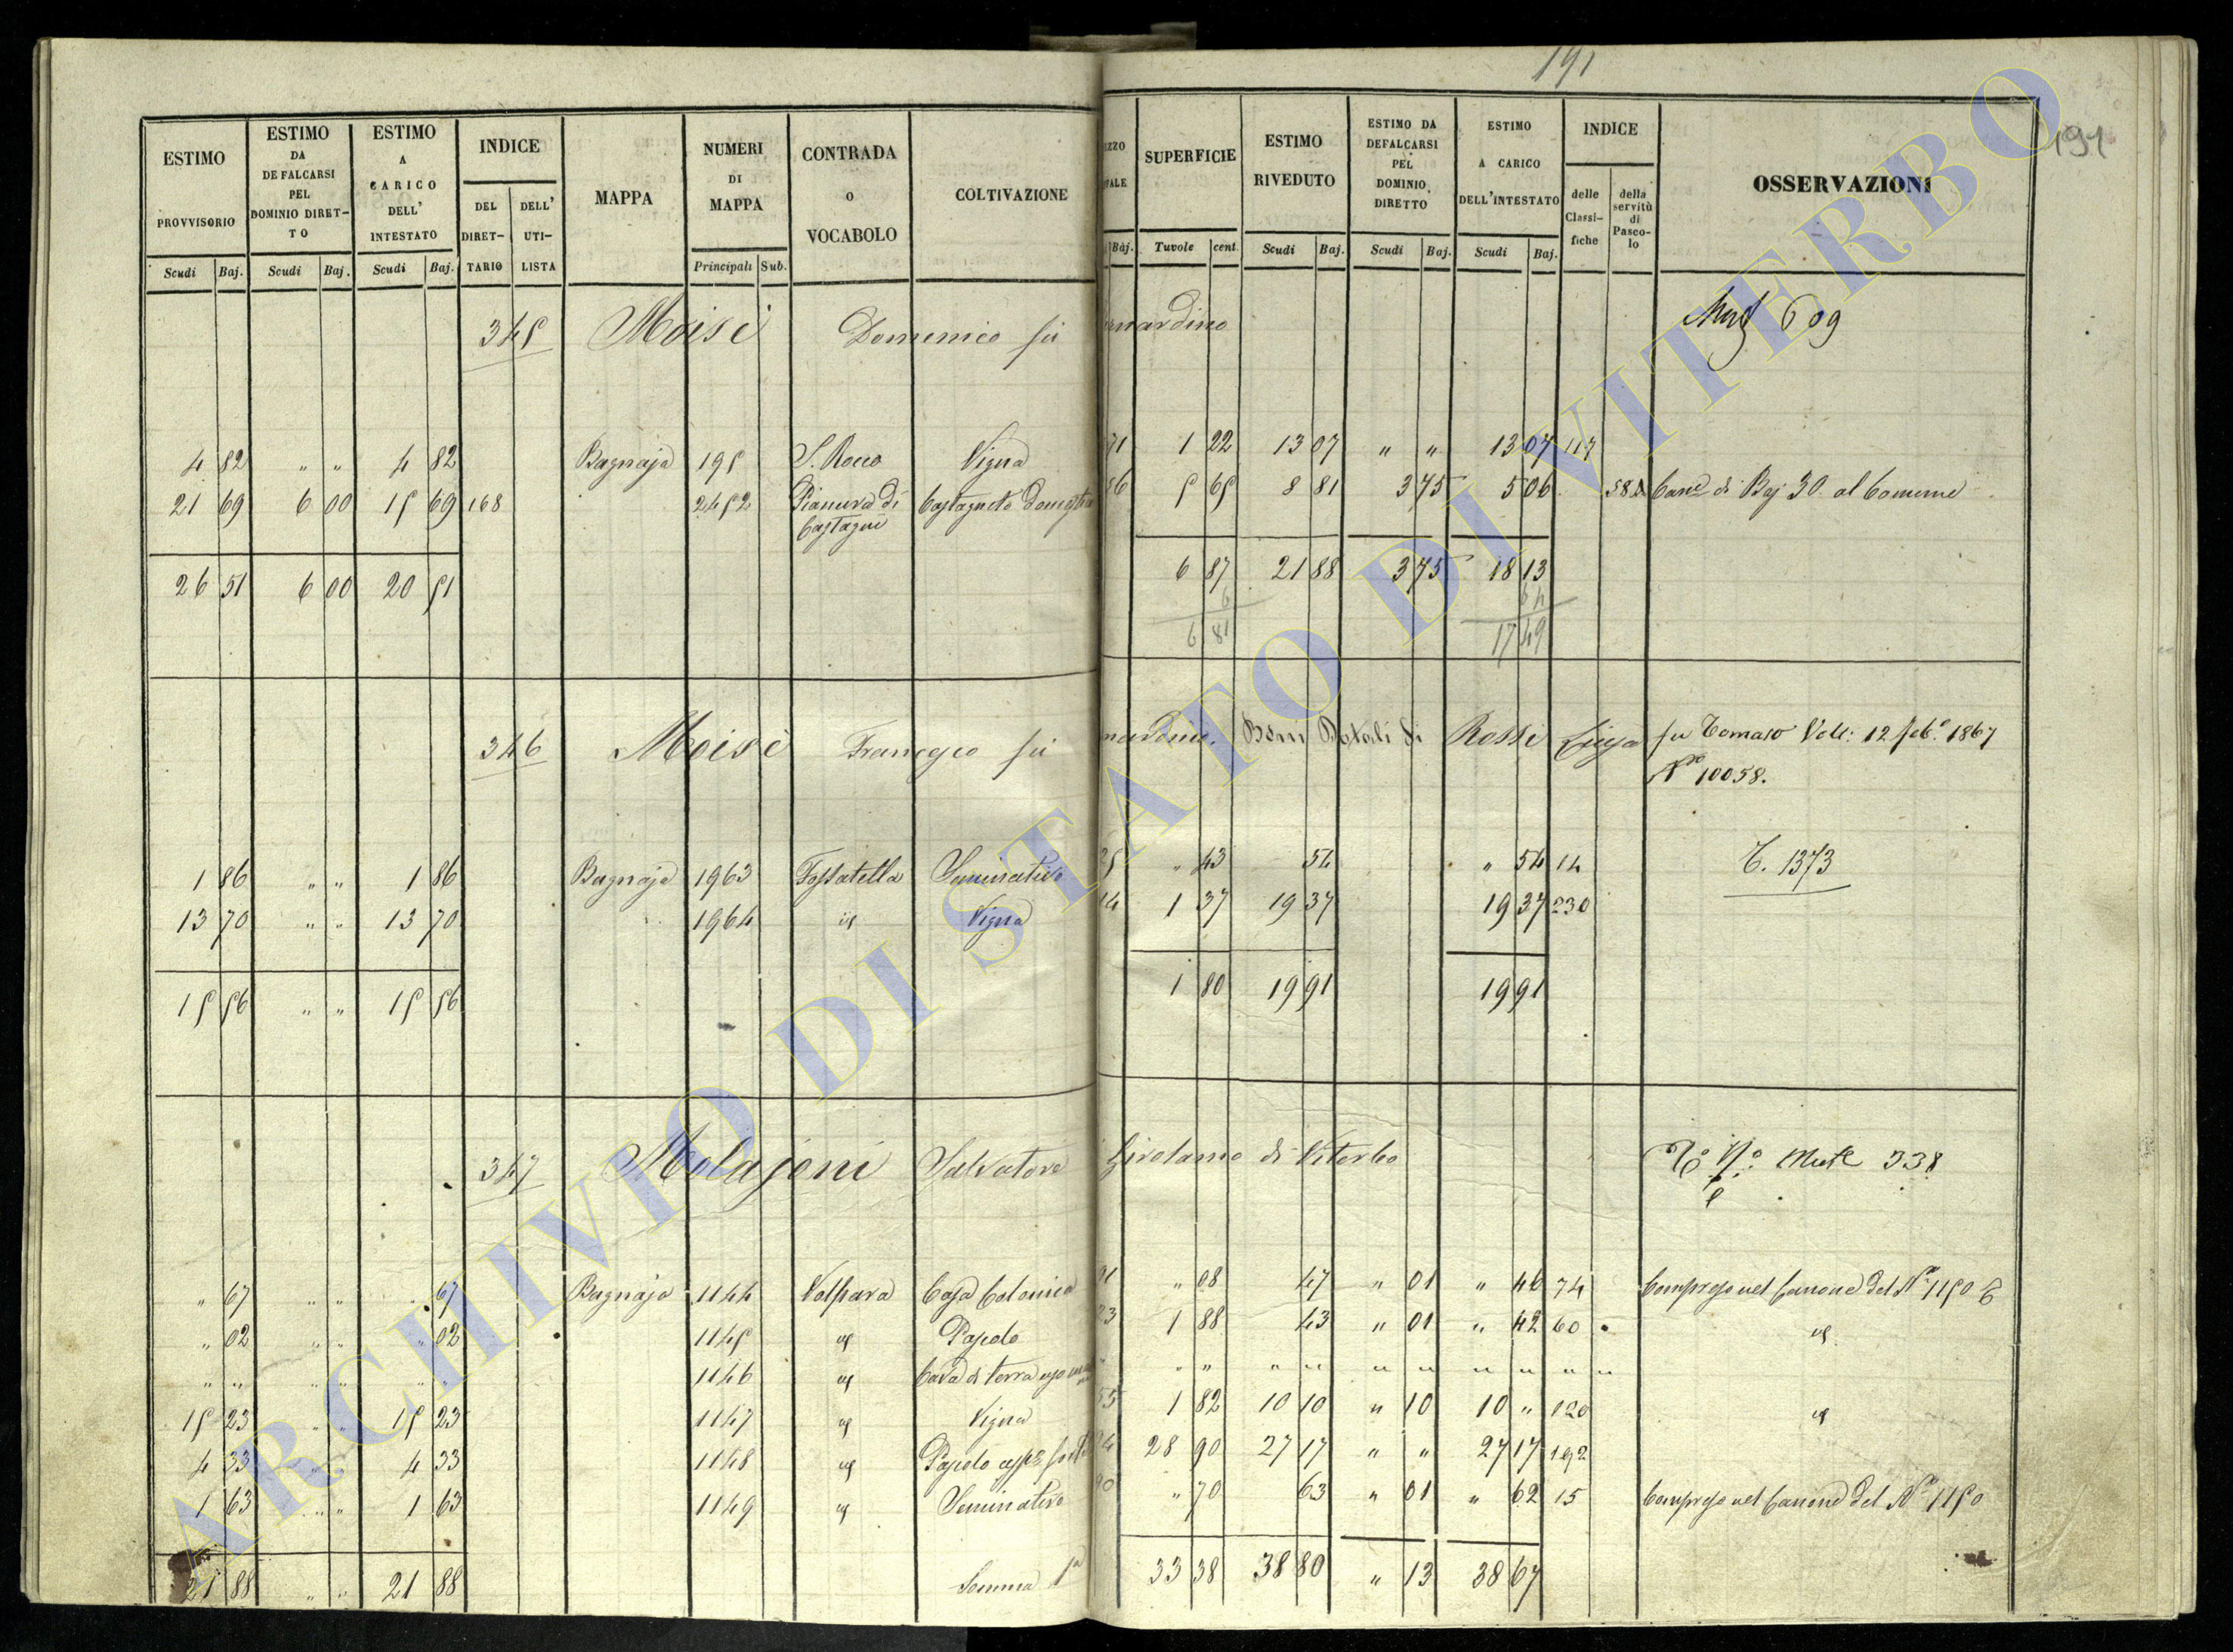 191
191
ESTIMO PROVVISORIO | ESTIMO DA DEFALCARSI PEL DOMINIO DIRETTO | ESTIMO A CARICO DELL' INTESTATO | INDICE | MAPPA | NUMERI DI MAPPA | CONTRADA o VOCABOLO | COLTIVAZIONE | SUPERFICIE | ESTIMO RIVEDUTO | ESTIMO DA DEFALCARSI PEL DOMINIO DIRETTO | ESTIMO A CARICO DELL'INTESTATO | INDICE | OSSERVAZIONI
DEL DIRETTARIO | DELL' UTILISTA | delle Classifiche | della servitù di Pascolo
Scudi | Baj. | Scudi | Baj. | Scudi | Baj. | Principali | Sub. | Baj. | Tavole | cent. | Scudi | Baj. | Scudi | Baj. | Scudi | Baj.
345 Moisè Domenico fu ernardino 609
4 82 " " 4 82 Bagnaja 195 S. Rocco Vigna 71 1 22 13 07 " " 13 07 117
21 69 6 00 15 69 168 2452 Pianura di Castagni Castagneto Domestico 56 5 65 8 81 3 75 5 06 Can. di Baj 30 al Comune
26 51 6 00 20 51 6 87 21 88 3 75 18 13
6 64
6 81 17 49
346 Moisè Francesco fu nardino. Beni Dotali di Rossi Luisa fu Tomaso Volt: 12 feb.o 1867
No 10058.
1 86 " " 1 86 Bagnaja 1963 Fossatella Seminativo 25 " 43 54 " 54 14 T. 1373
13 70 " " 13 70 1964 id Vigna 14 1 37 19 37 19 37 230
15 56 " " 15 56 1 80 19 91 19 91
347 Molajoni Salvatore Girolamo di Viterbo 338
" 67 " " " 67 Bagnaja 1144 Valspara Casa Colonica 91 " 08 47 " 01 " 46 74 Compreso nel Canone del No 1150
" 02 " " " 02 1145 id Pascolo 23 1 88 43 " 01 " 42 60 id
" " " " " " 1146 id Cava di terra " " " " " " " " " " "
15 23 " " 15 23 1147 id Vigna 55 1 82 10 10 " 10 10 " 120 id
4 33 " " 4 33 1148 id Pascolo 94 28 90 27 17 " " 27 17 192
1 63 " " 1 63 1149 id Seminativo 90 " 70 63 " 01 " 62 15 Compreso nel Canone del No 1150
21 88 " " 21 88 Somma 33 38 38 80 " 13 38 67
ARCHIVIO DI STATO DI VITERBO